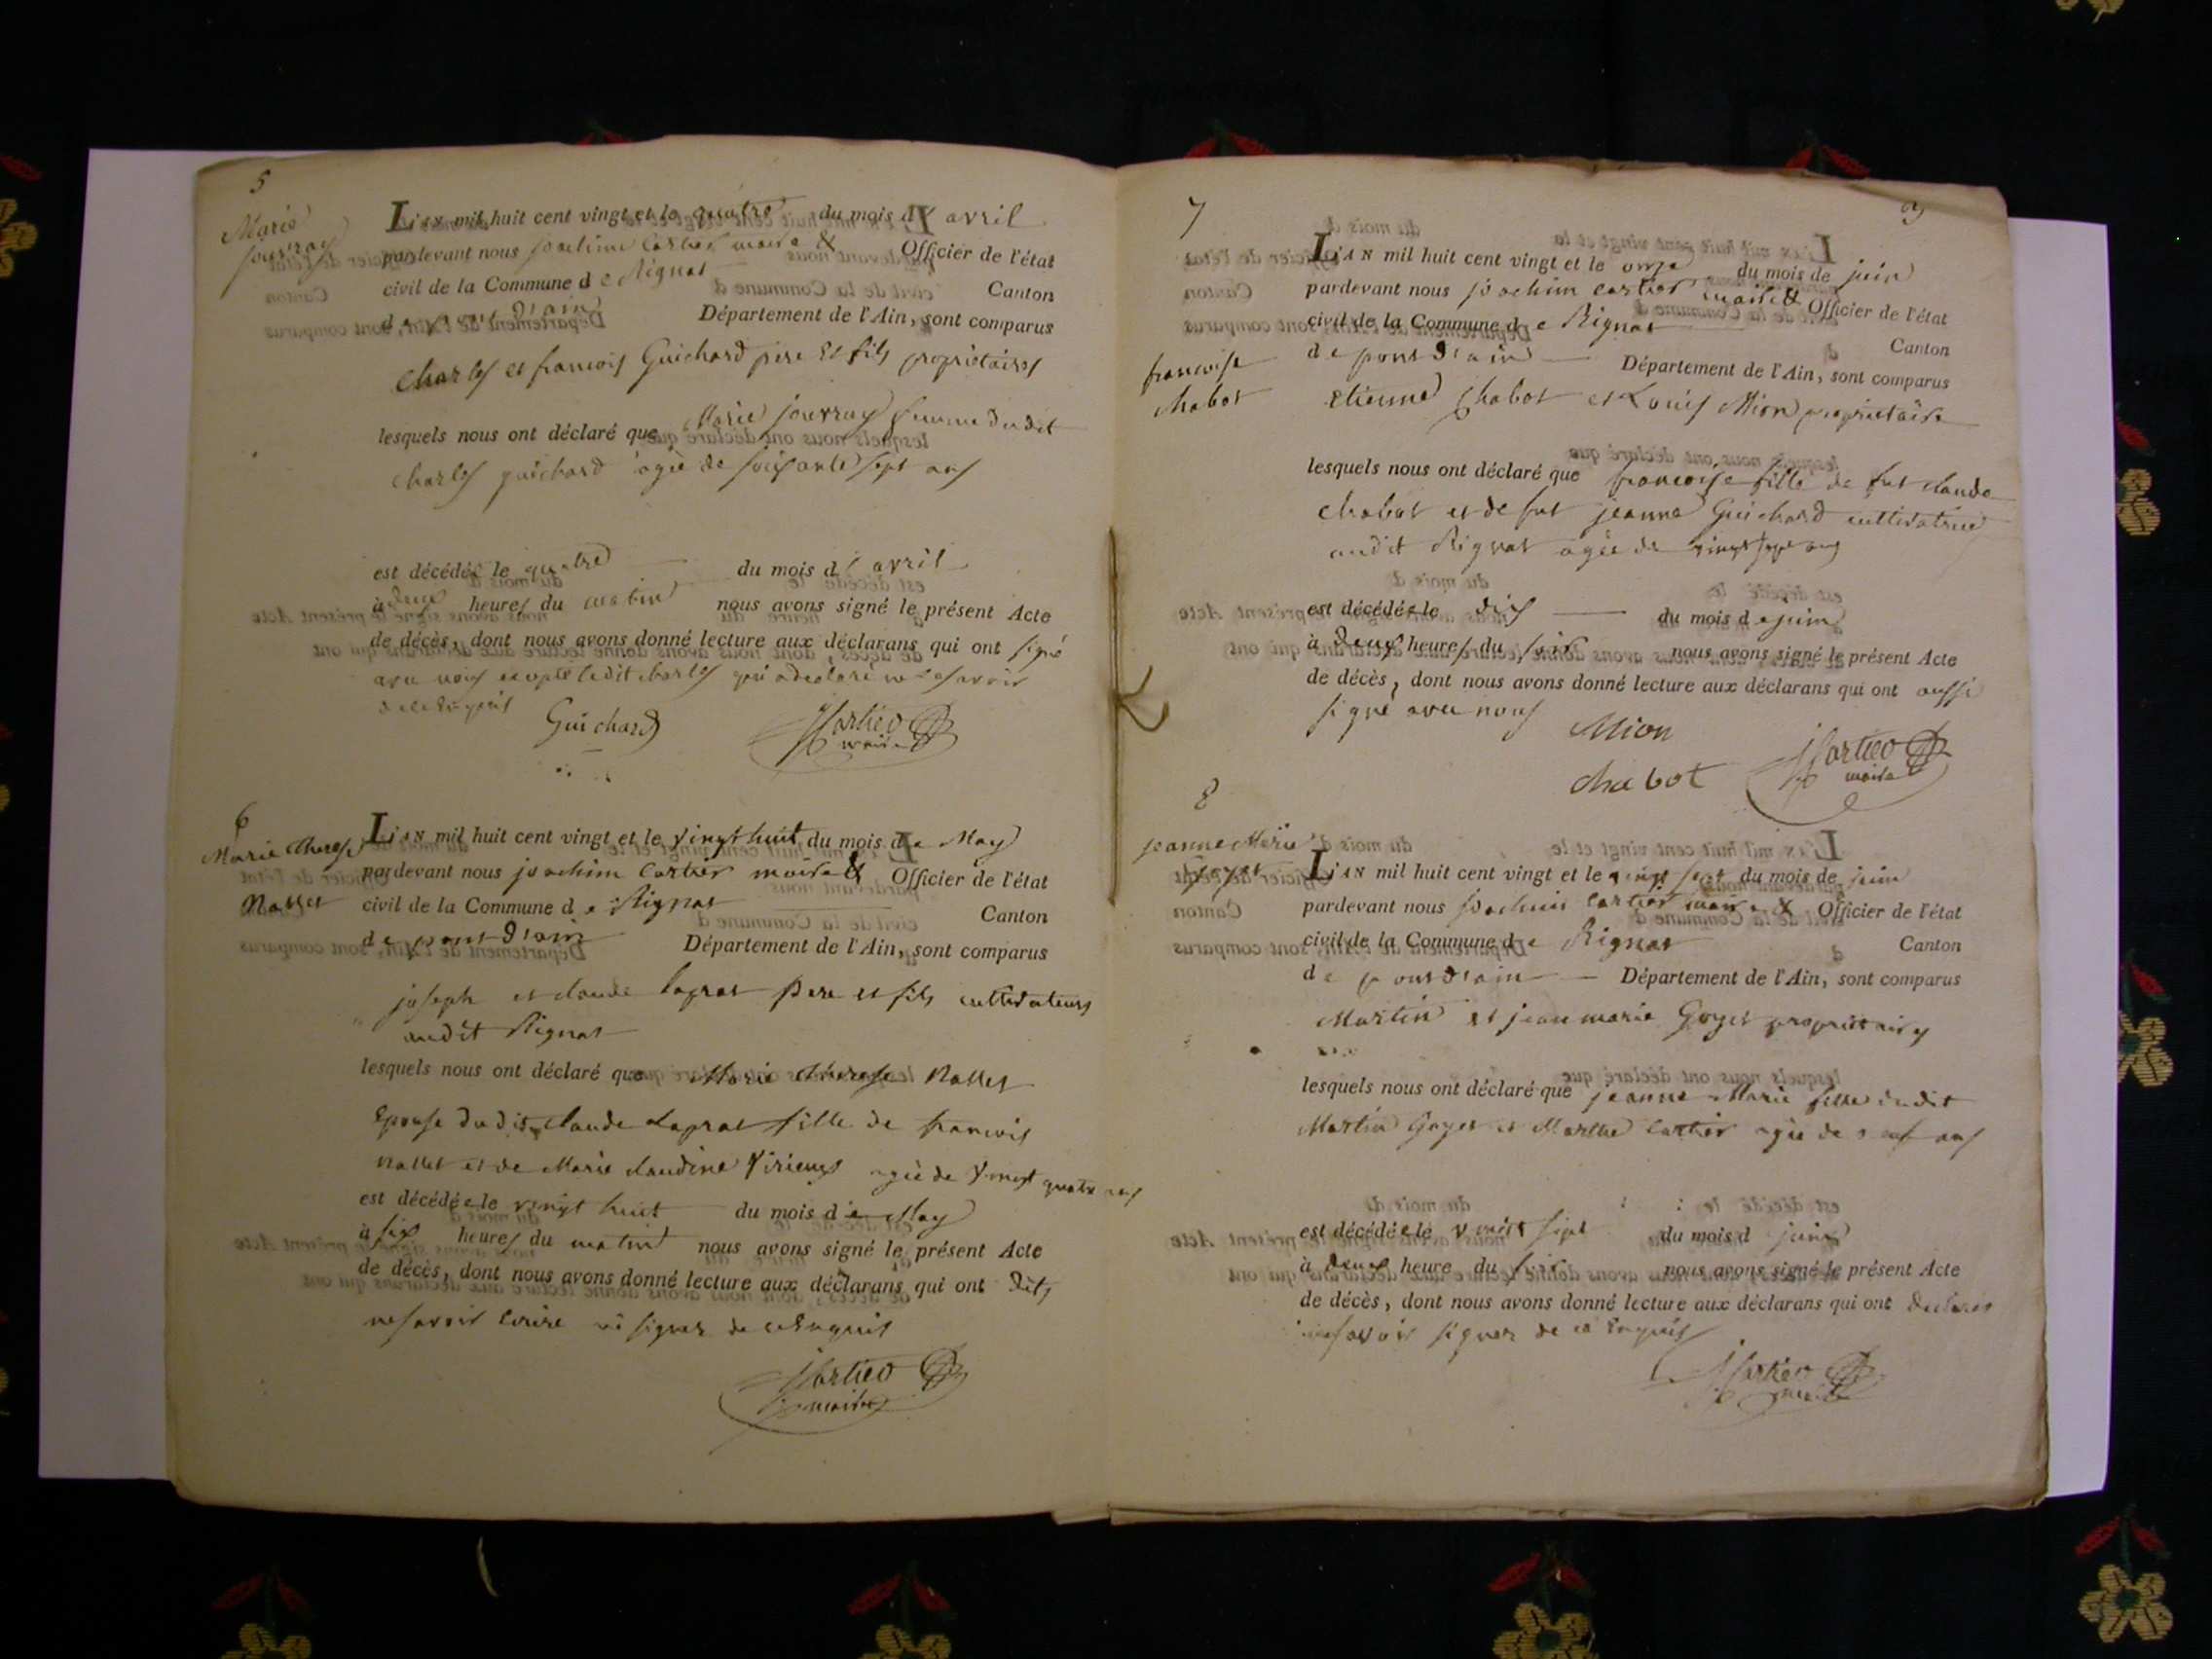 5
Marie
jourray
L'AN mil huit cent vingt et le quatre du mois d'avril
pardevant nous joachim Cartier maire & Officier de l'état
civil de la Commune de Rignat Canton
d'ain Département de l'Ain, sont comparus
Charles et francois Guichard pere et fils proprietaires
lesquels nous ont déclaré que Marie jourray femme dudit
charles guichard agée de soixante sept ans
est décédée le quatre du mois d'avril
à heures du matin nous avons signé le présent Acte
de décès, dont nous avons donné lecture aux déclarans qui ont signé
avec nous excepté ledit charles qui a declaré ne savoir
de ce Enquis
Guichard Cartier
maire
6
Marie therese
Nallet
L'AN mil huit cent vingt et le vingt huit du mois de May
pardevant nous joachim Cartier maire & Officier de l'état
civil de la Commune de Rignat Canton
de pont d'ain Département de l'Ain, sont comparus
joseph et claude lapras pere et fils cultivateurs
audit Rignat
lesquels nous ont déclaré que Marie therese Nallet
Epouse dudit claude Lapras fille de francois
Nallet et de Marie claudine agée de vingt quatre ans
est décédée le vingt huit du mois de May
à six heures du matin nous avons signé le présent Acte
de décès, dont nous avons donné lecture aux déclarans qui ont dits
ne savoir Ecrire ni signer de ce Enquis
Cartier
maire
7
3
francoise
chabot
L'AN mil huit cent vingt et le onze du mois de juin
pardevant nous joachim cartier maire & Officier de l'état
civil de la Commune de Rignat Canton
de pont d'ain Département de l'Ain, sont comparus
etienne chabot et Louis Mion proprietaire
lesquels nous ont déclaré que francoise fille de fut claude
chabot et de fut jeanne Guichard cultivatrice
audit Rignat agée de vingt sept ans
est décédée le dix du mois de juin
à deux heures du soir nous avons signé le présent Acte
de décès, dont nous avons donné lecture aux déclarans qui ont aussi
signé avec nous
Mion
chabot Cartier
maire
8
jeanne Marie
goyet
L'AN mil huit cent vingt et le vingt sept du mois de juin
pardevant nous joachim Cartier maire & Officier de l'état
civil de la Commune de Rignat Canton
de pont d'ain Département de l'Ain, sont comparus
Martin et jean marie Goyet proprietaires
lesquels nous ont déclaré que jeanne Marie fille dudit
Martin Goyet et Marthe Cartier agée de ans
est décédée le vingt sept du mois d juin
à deux heure du soir nous avons signé le présent Acte
de décès, dont nous avons donné lecture aux déclarans qui ont declarés
ne savoir signer de ce Enquis
Cartier
maire